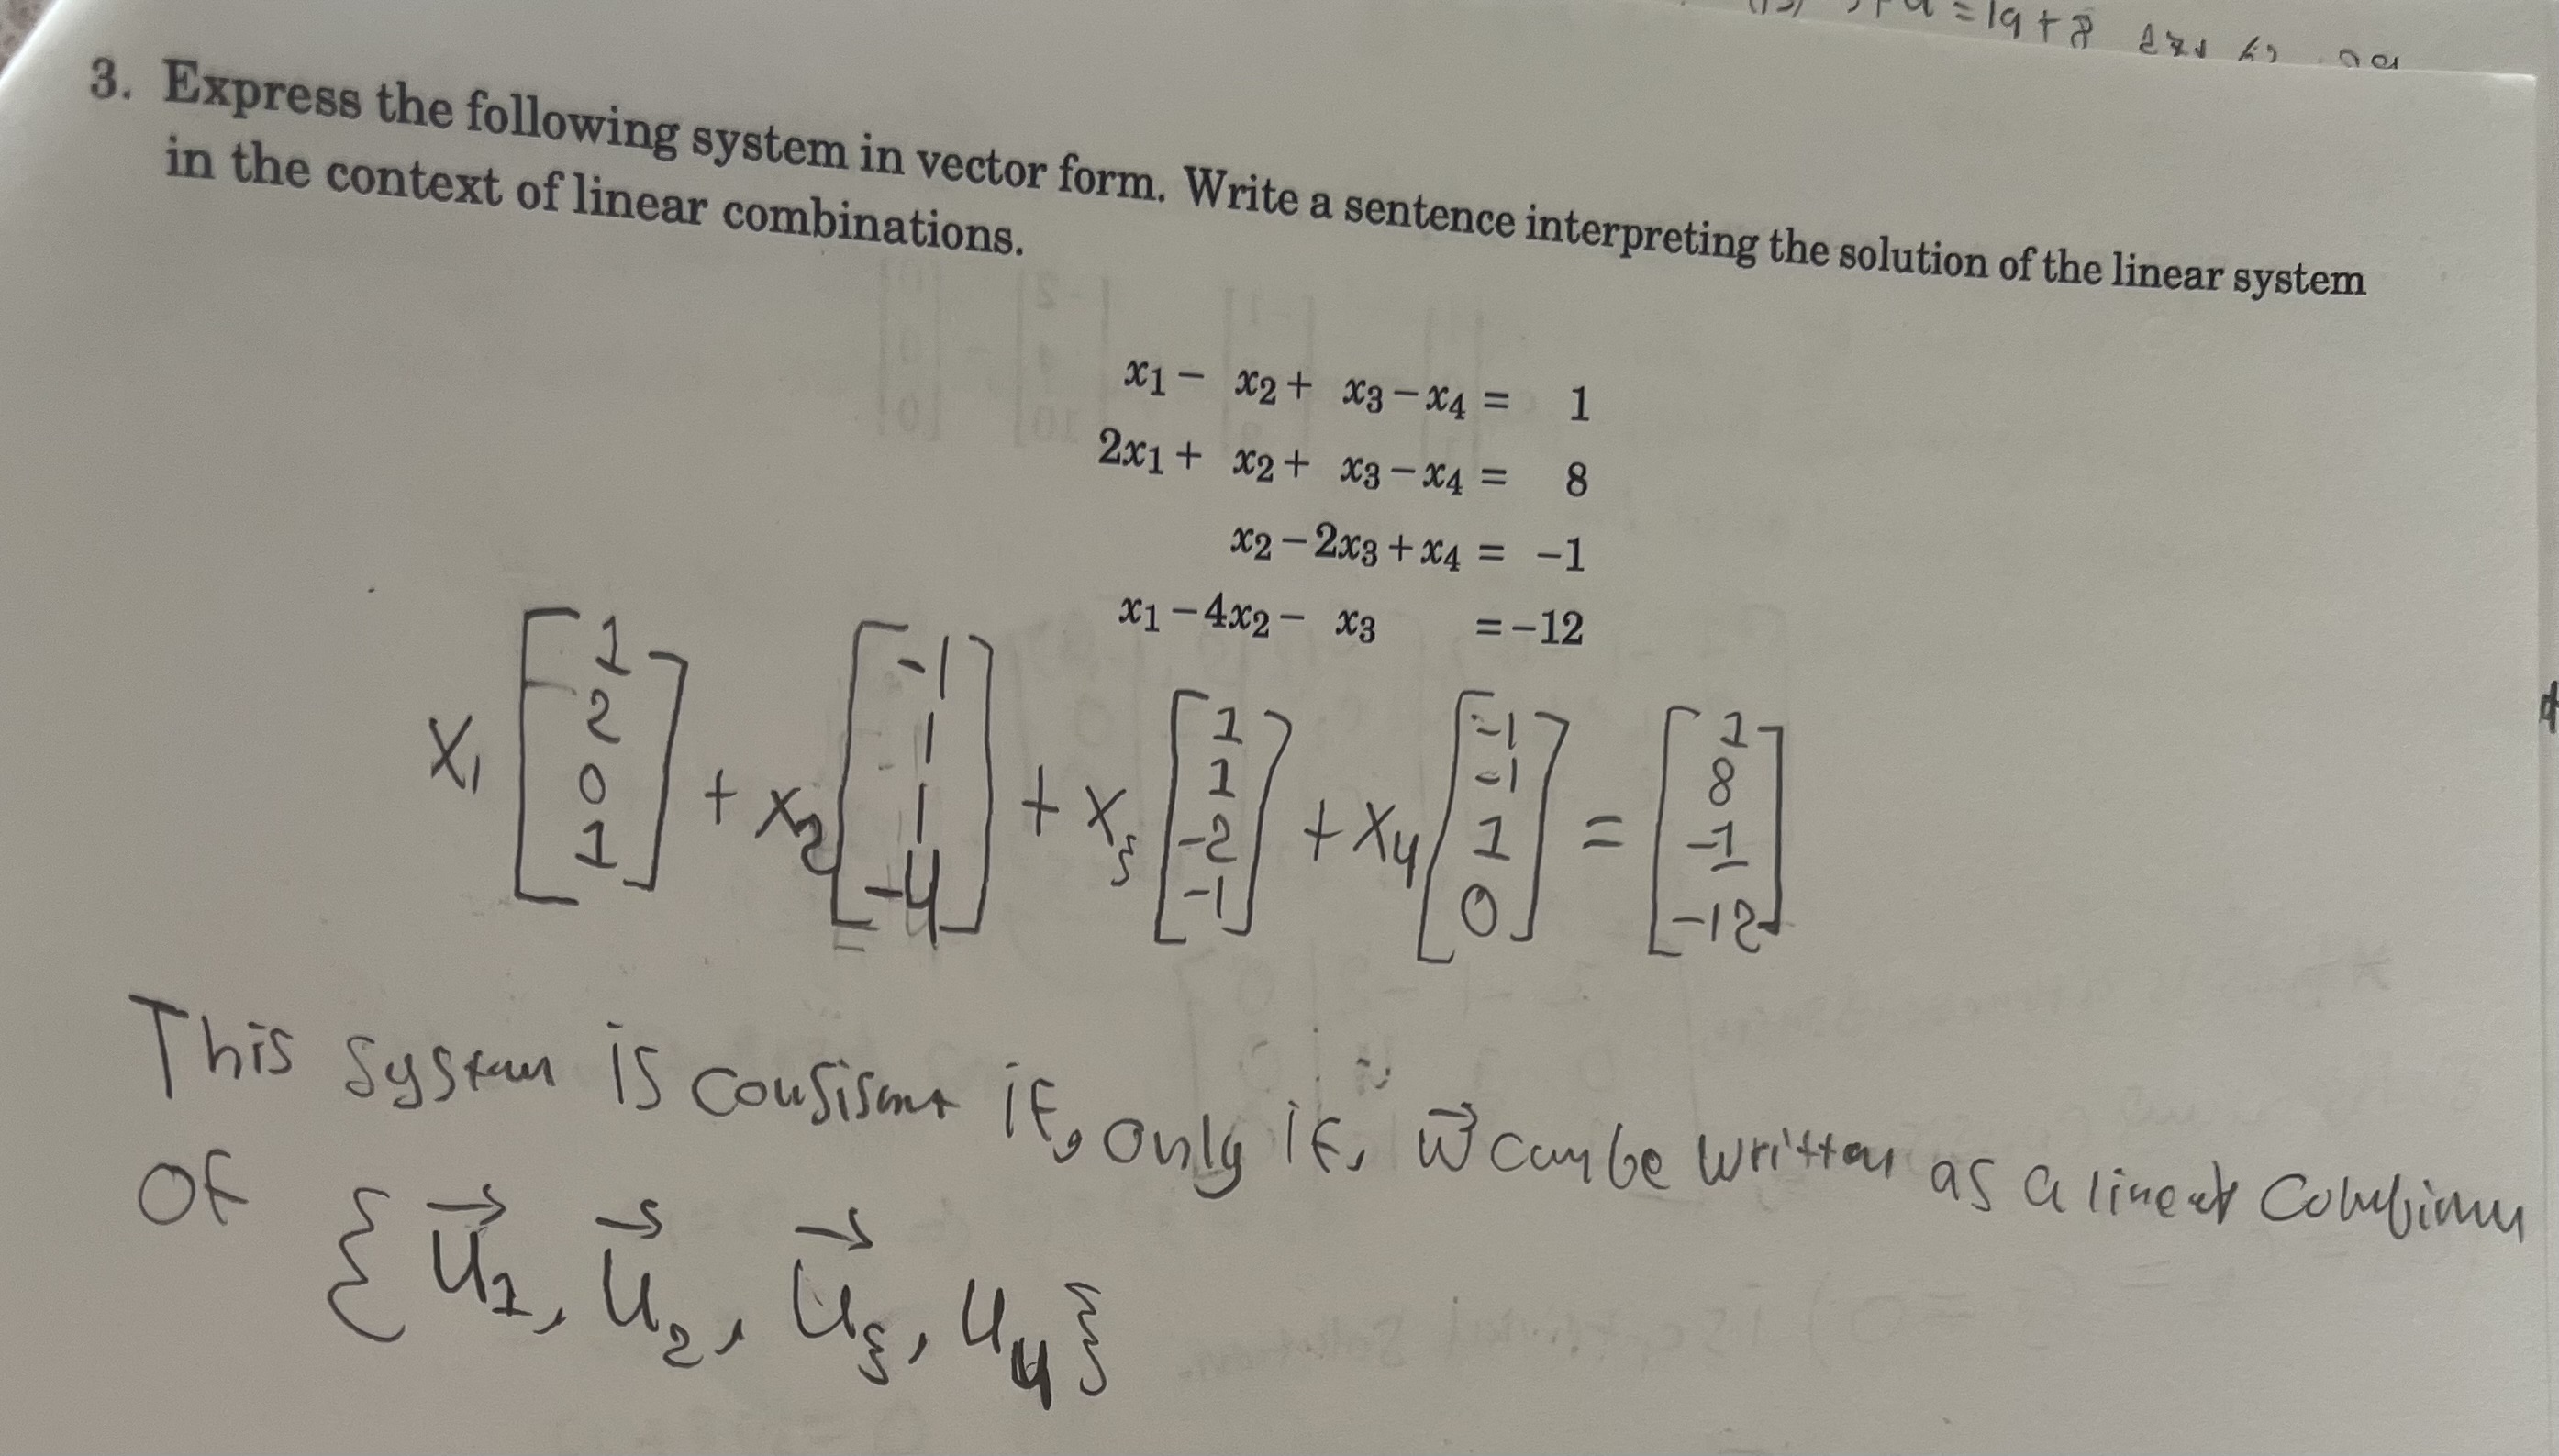 = 19 + 8
3. Express the following system in vector form. Write a sentence interpreting the solution of the linear system
in the context of linear combinations.
x1 − x2 + x3 − x4 = 1
2x1 + x2 + x3 − x4 = 8
x2 − 2x3 + x4 = −1
x1 − 4x2 − x3 = −12
X1 [1 2 0 1] + X2 [-1 1 1 -4] + X3 [1 1 -2 -1] + X4 [-1 -1 1 0] = [1 8 -1 -12]
This system is consisent if, only if, w⃗ can be written as a linear
of {u⃗1, u⃗2, u⃗3, u4}